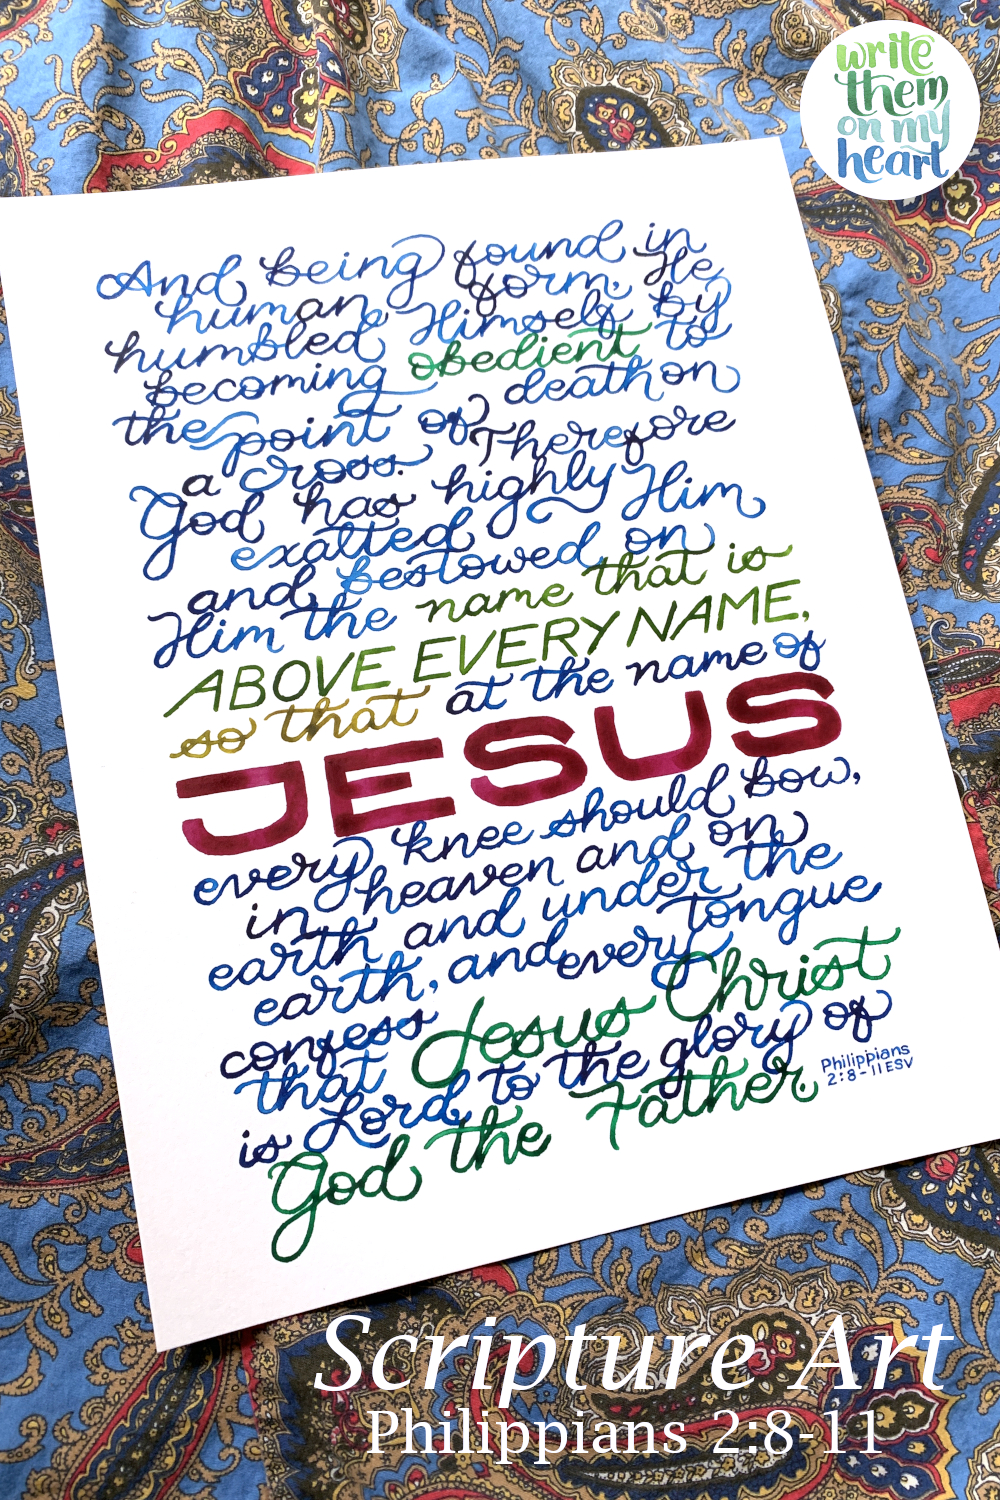 write
them
on my
heart
And being found in
human form, He
humbled Himself by
becoming obedient to
the point of death on
a cross. Therefore
God has highly
exalted Him
and bestowed on
Him the name that is
ABOVE EVERY NAME,
so that at the name of
JESUS
every knee should bow,
in heaven and on
earth and under the
earth, and every tongue
confess
that Jesus Christ
is Lord to the glory of
God the Father.
Philippians
2:8-11 ESV
Scripture Art
Philippians 2:8-11